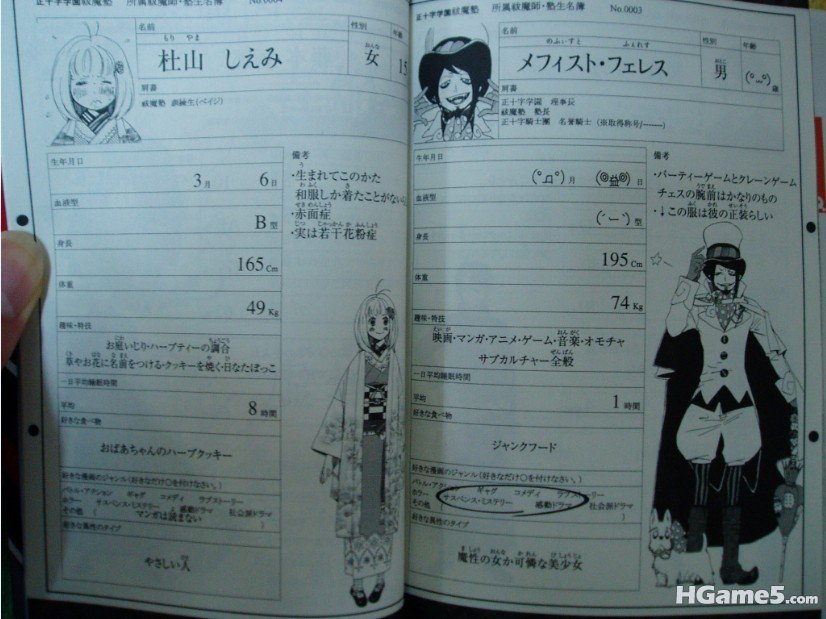 正十字学園祓魔塾 所属祓魔師・塾生名簿 No.0004
名前
もり やま
杜山 しえみ
性別
おんな
女
年齢
15
肩書
祓魔塾 訓練生(ペイジ)
生年月日
3月 6日
血液型
B型
身長
165Cm
体重
49Kg
趣味・特技
お庭いじり・ハーブティーの調合
草やお花に名前をつける・クッキーを焼く・日なたぼっこ
一日平均睡眠時間
平均 8時間
好きな食べ物
おばあちゃんのハーブクッキー
好きな漫画のジャンル(好きなだけ○を付けなさい。)
バトル・アクション ギャグ コメディ ラブストーリー
ホラー サスペンス・ミステリー 感動ドラマ 社会派ドラマ
その他 ( マンガは読まない )
好きな異性のタイプ
やさしい人
備考
・生まれてこのかた
和服しか着たことがない
・赤面症
・実は若干花粉症
正十字学園祓魔塾 所属祓魔師・塾生名簿 No.0003
名前
めふぃすと・ふぇれす
メフィスト・フェレス
性別
おとこ
男
年齢
歳
肩書
正十字学園 理事長
祓魔塾 塾長
正十字騎士團 名誉騎士 (※取得称号/-------)
生年月日
月 日
血液型
型
身長
195Cm
体重
74Kg
趣味・特技
映画・マンガ・アニメ・ゲーム・音楽・オモチャ
サブカルチャー全般
一日平均睡眠時間
平均 1時間
好きな食べ物
ジャンクフード
好きな漫画のジャンル(好きなだけ○を付けなさい。)
バトル・アクション ギャグ コメディ ラブストーリー
ホラー サスペンス・ミステリー 感動ドラマ 社会派ドラマ
その他 ( )
好きな異性のタイプ
魔性の女か可憐な美少女
備考
・パーティーゲームとクレーンゲーム
チェスの腕前はかなりのもの
・↓この服は彼の正装らしい
HGame5.com